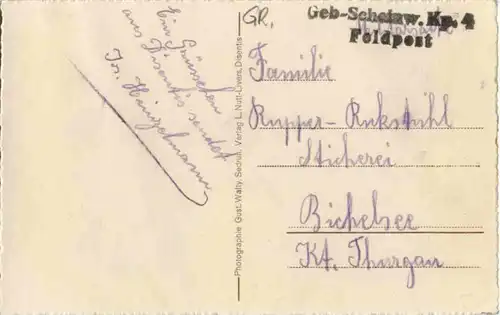 Ein Grüsschen
aus Disentis sendet
Fr. Heinzelmann
Photographie Gust. Walty, Sedrun, Verlag L. Nutt-Livers, Disentis
GR.
Geb-Scheinw. Kp. 4
Feldpost
Familie
Rupper-Rukstuhl
Stickerei
Bichelsee
Kt. Thurgau